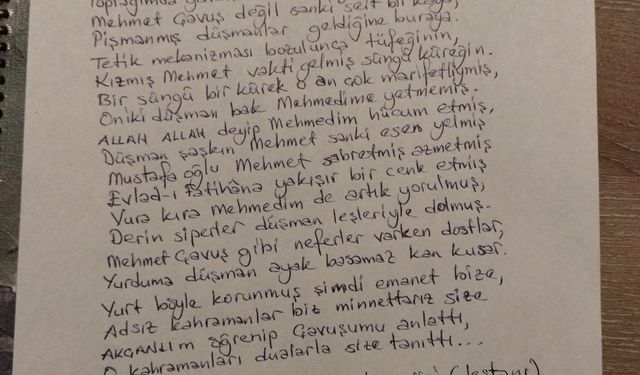 Toprağımda
Mehmet Çavuş değil sanki sert bir kaya,
Pişmanmış düşmanlar geldiğine buraya.
Tetik mekanizması bozulunca tüfeğinin,
Kızmış Mehmet vakti gelmiş süngü küreğin.
Bir süngü bir kürek o an çok marifetliymiş,
Oniki düşman bak Mehmedime yetmemiş.
ALLAH ALLAH deyip Mehmedim hücum etmiş,
Düşman şaşkın Mehmet sanki esen yelmiş
Mustafa oğlu Mehmet sabretmiş azmetmiş
Evlad-ı Fatihâna yakışır bir cenk etmiş
Vura kıra mehmedim de artık yorulmuş,
Derin siperler düşman leşleriyle dolmuş.
Mehmet Çavuş gibi neferler varken dostlar,
Yurduma düşman ayak basamaz kan kusar.
Yurt böyle korunmuş şimdi emanet bize,
Adsız kahramanlar biz minnettarız size
AKCANLIM öğrenip Çavuşumu anlattı,
O kahramanları dualarla size tanıttı...